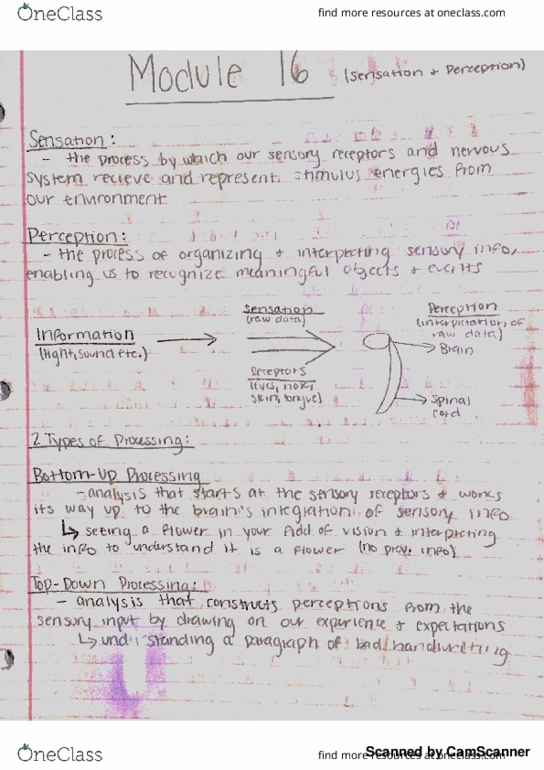 OneClass
find more resources at oneclass.com
Module 16 (Sensation + Perception)
Sensation:
- the process by which our sensory receptors and nervous
system recieve and represent stimulus energies from
our environment
Perception:
- the process of organizing + interpreting sensory info,
enabling us to recognize meaningful objects + events
Information
(light, sound etc.)
Sensation
(raw data)
Receptors
(eyes, nose,
skin, tongue)
Perception
(interpretation of
raw data)
Brain
Spinal
cord
2 Types of Processing:
Bottom-Up Processing
- analysis that starts at the sensory receptors + works
its way up to the brain's integration of sensory info
↳ seeing a flower in your field of vision + interpreting
the info to understand it is a flower (no prev. info)
Top-Down Processing:
- analysis that constructs perceptions from the
sensory input by drawing on our experience + expectations
↳ understanding a paragraph of bad handwriting
OneClass
find more resources at oneclass.com
Scanned by CamScanner